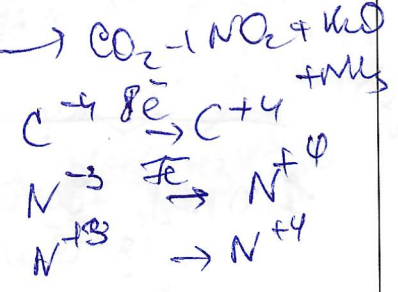 → CO₂ + NO₂ + H₂O
+ NH₃
C⁻⁴ 8ē → C⁺⁴
N⁻³ 7ē → N⁺⁴
N⁺³ → N⁺⁴